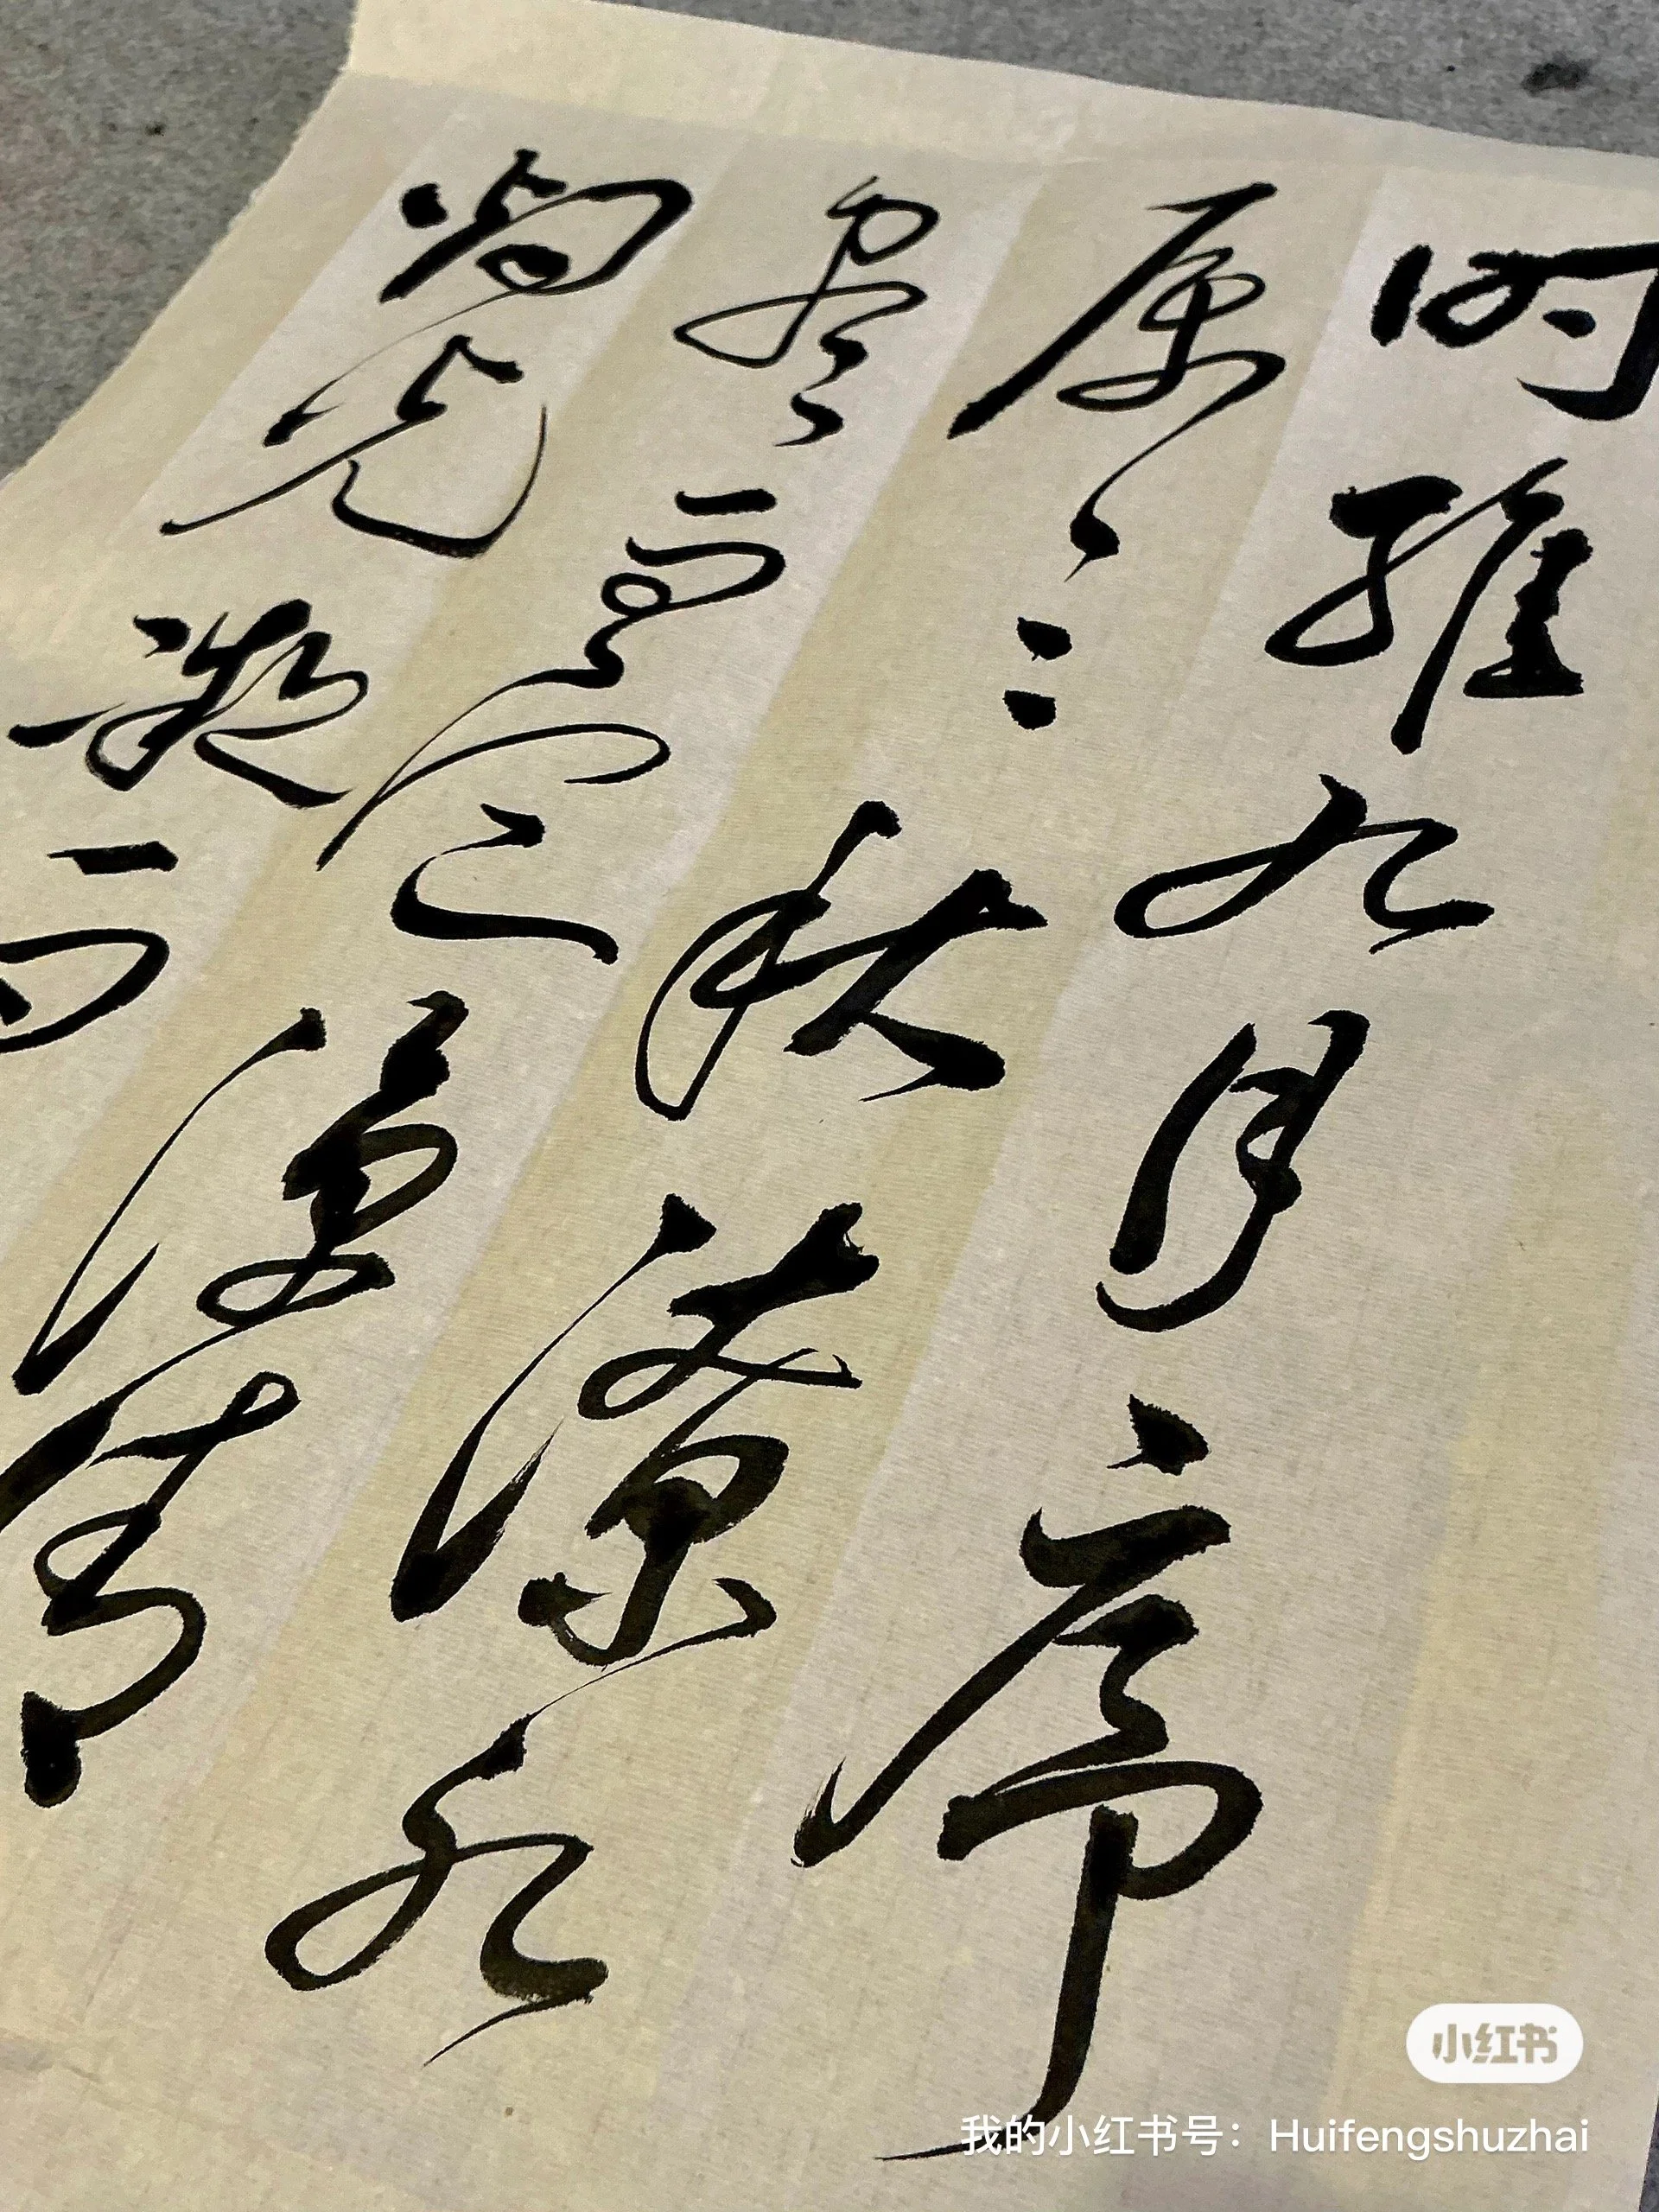 时维九月序
属三秋潦水
尽而寒潭清
烟光凝而
小红书
我的小红书号：Huifengshuzhai